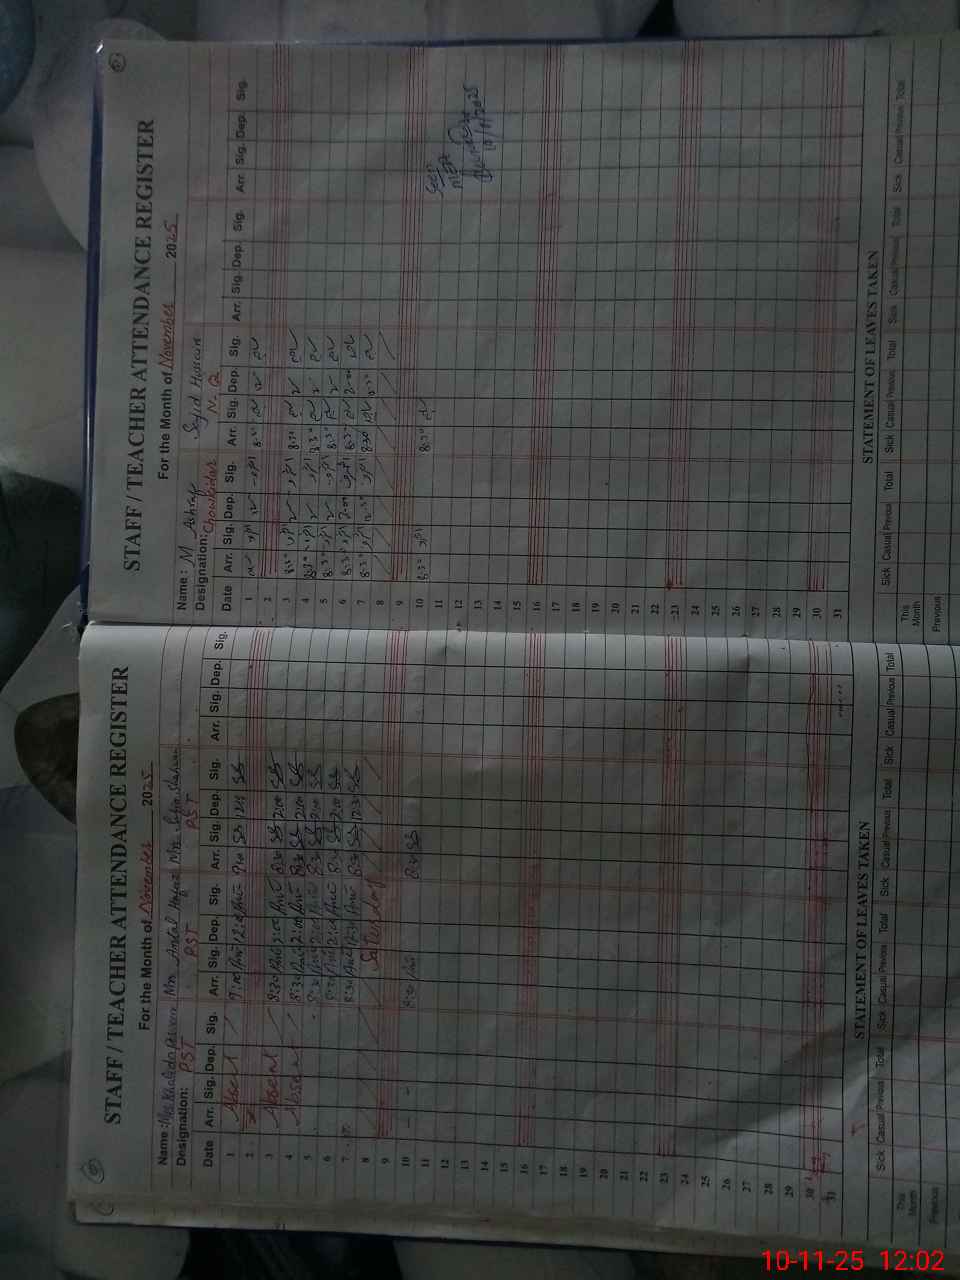 STAFF / TEACHER ATTENDANCE REGISTER
For the Month of November 2025
Name: Mrs Khalida Parveen Mrs Amtal Hafaz Mrs Safia Shaheen
Designation: PST PST PST
Date Arr. Sig. Dep. Sig. Arr. Sig. Dep. Sig. Arr. Sig. Dep. Sig. Arr. Sig. Dep. Sig.
1 Absent 9:00 12:00 9:00 12:00
2
3 Absent 8:30 2:00 8:30 2:00
4 Absent 8:30 2:00 8:30 2:00
5 8:30 2:00 8:30 2:00
6 8:30 2:00 8:30 2:00
7 8:30 12:30 8:30 12:30
8 Saturday
9
10 8:30 8:30
11
12
13
14
15
16
17
18
19
20
21
22
23
24
25
26
27
28
29
30
31
STATEMENT OF LEAVES TAKEN
Sick Casual Previous Total Sick Casual Previous Total Sick Casual Previous Total Sick Casual Previous Total
This Month
Previous
STAFF / TEACHER ATTENDANCE REGISTER
For the Month of November 2025
Name: M Ashraf Sajid Hussain
Designation: Chowkidar N.Q
Date Arr. Sig. Dep. Sig. Arr. Sig. Dep. Sig. Arr. Sig. Dep. Sig. Arr. Sig. Dep. Sig.
1 8:30
2
3 8:30 8:30
4 8:30 8:30
5 8:30 8:30
6 8:30 2:00 8:30 2:00
7 8:30 12:30 8:30 12:30
8
9
10 8:30 8:30
11 Seen
12 MEA
13
14 10/11/2025
15
16
17
18
19
20
21
22
23
24
25
26
27
28
29
30
31
STATEMENT OF LEAVES TAKEN
Sick Casual Previous Total Sick Casual Previous Total Sick Casual Previous Total Sick Casual Previous Total
This Month
Previous
10-11-25 12:02